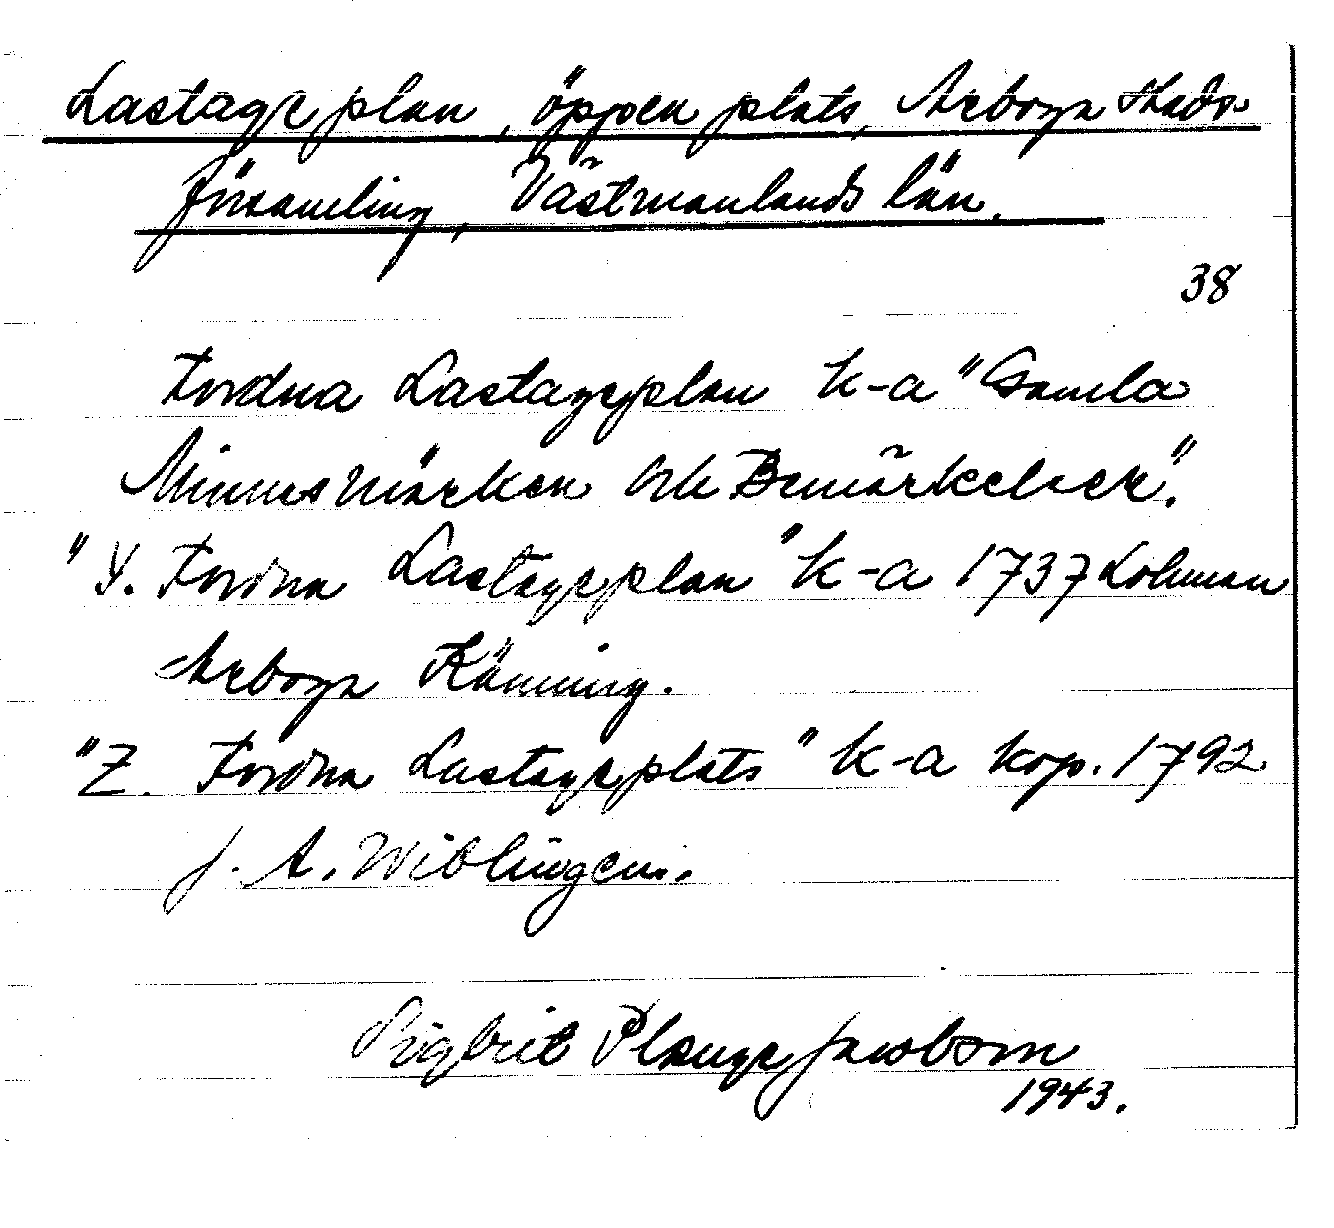 Lastageplan, öppen plats, Arboga stads-
församling, Västmanlands län.
38
Fordna Lastageplan k-a "Gamla
Minnesmärken och Bemärkelser".
"Y. Fordna Lastageplan" k-a 1737 Lohman
Arboga Känning.
"Z. Fordna Lastageplats" k-a kop. 1792
J. A. Wiblingen.
Sigbrit Plænge Jacobson
1943.